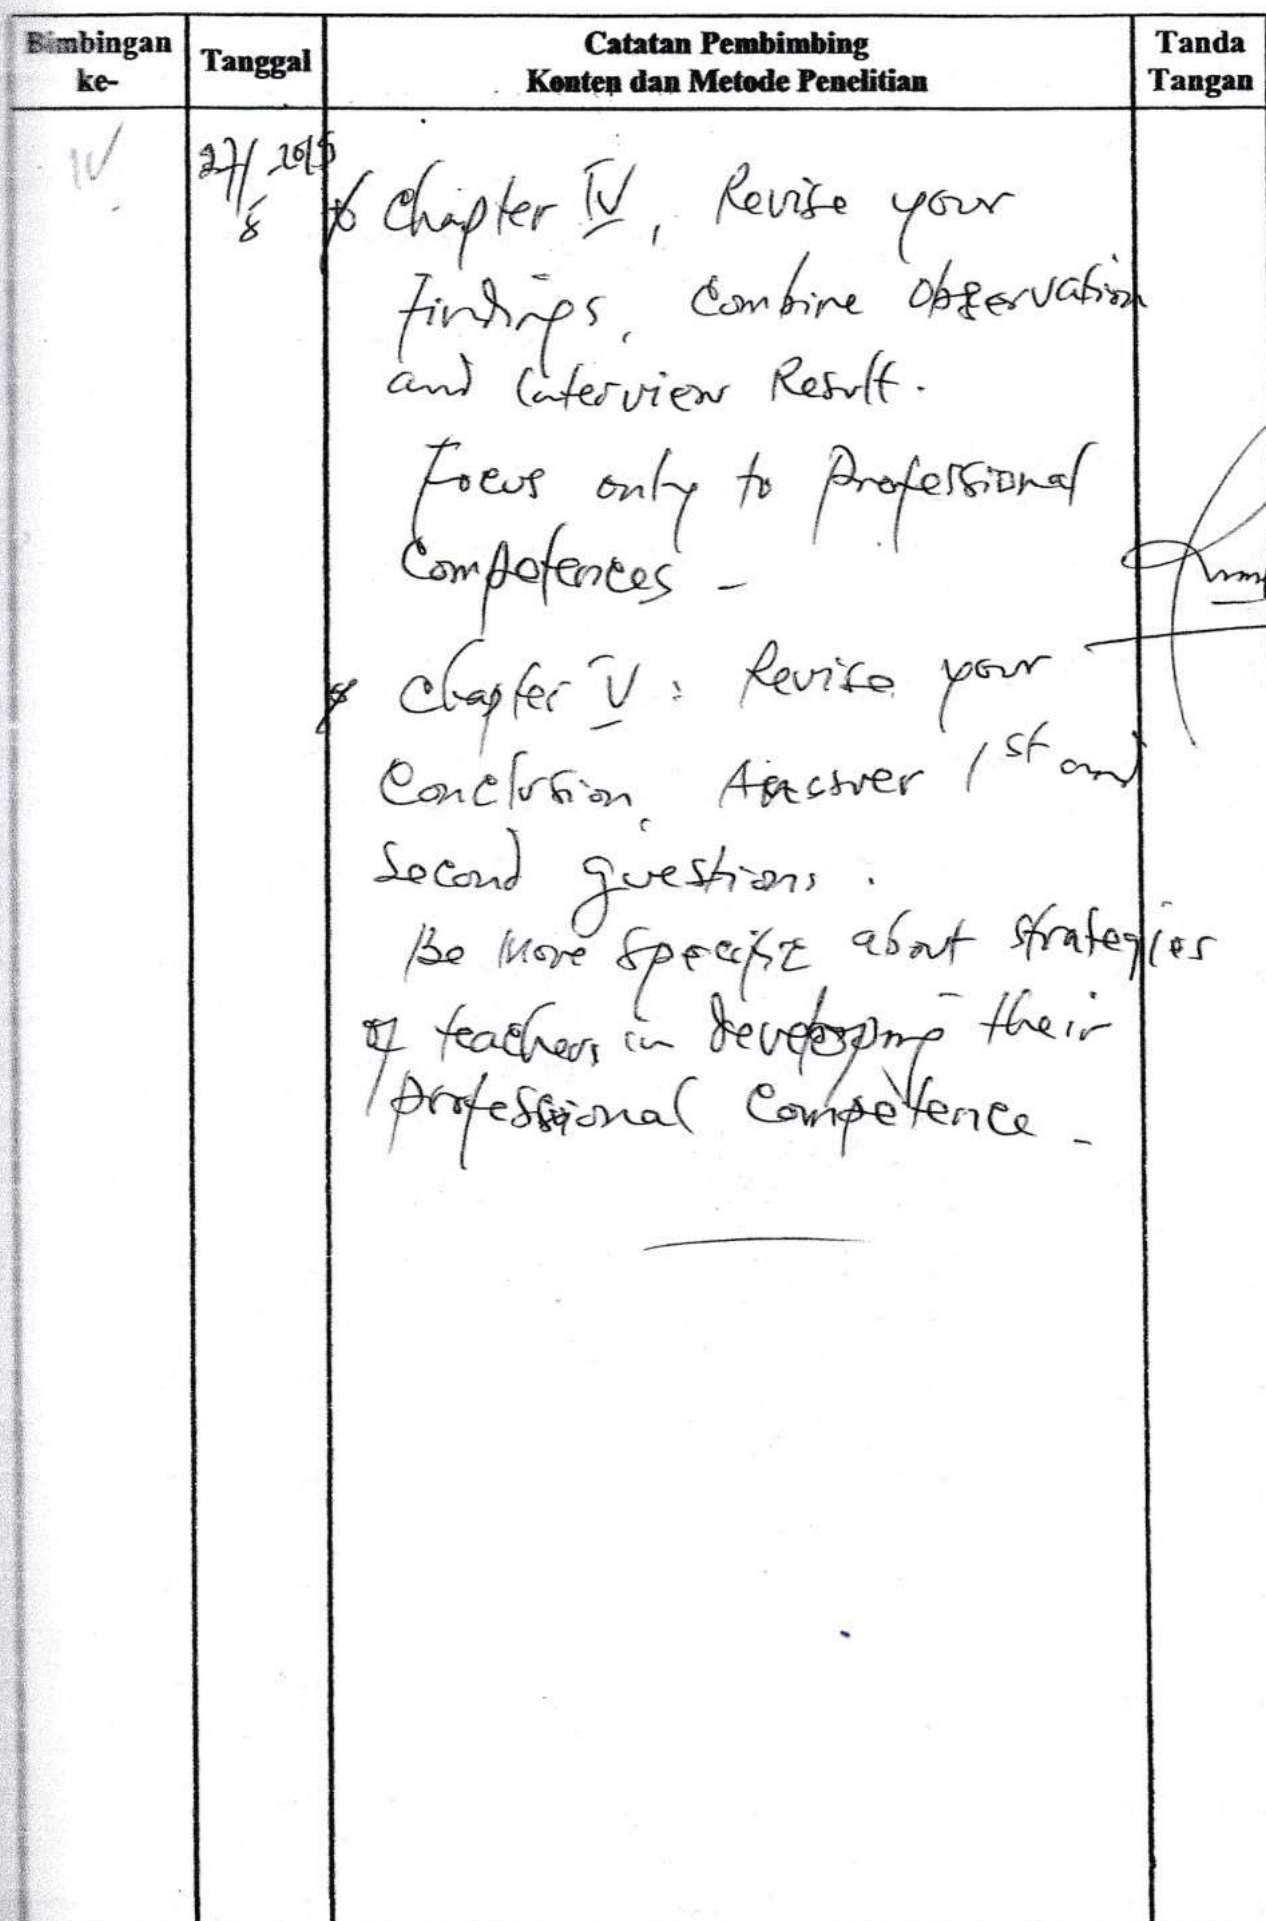 Bimbingan ke-
Tanggal
Catatan Pembimbing
Konten dan Metode Penelitian
Tanda Tangan
IV
27/8 2015
* Chapter IV, Revise your
Findings, Combine Observation
and interview Result.
Focus only to Professional
Competences -
* Chapter V : Revise your
Conclusion, Answer 1st and
Second questions.
Be More Specific about strategies
of teachers in developing their
professional Competence -